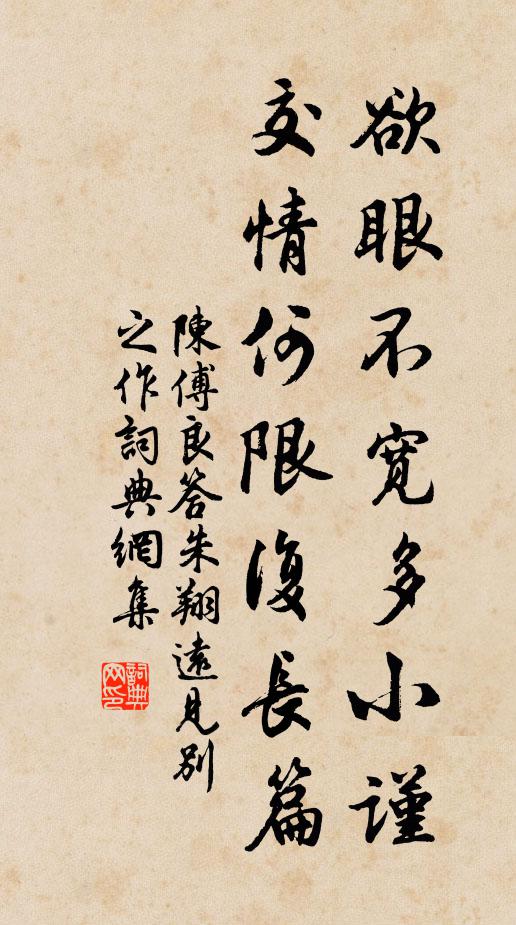 欲眼不寬多小謹
交情何限復長篇
陳傅良答朱翔遠見別
之作詞典網集
詞典
网印